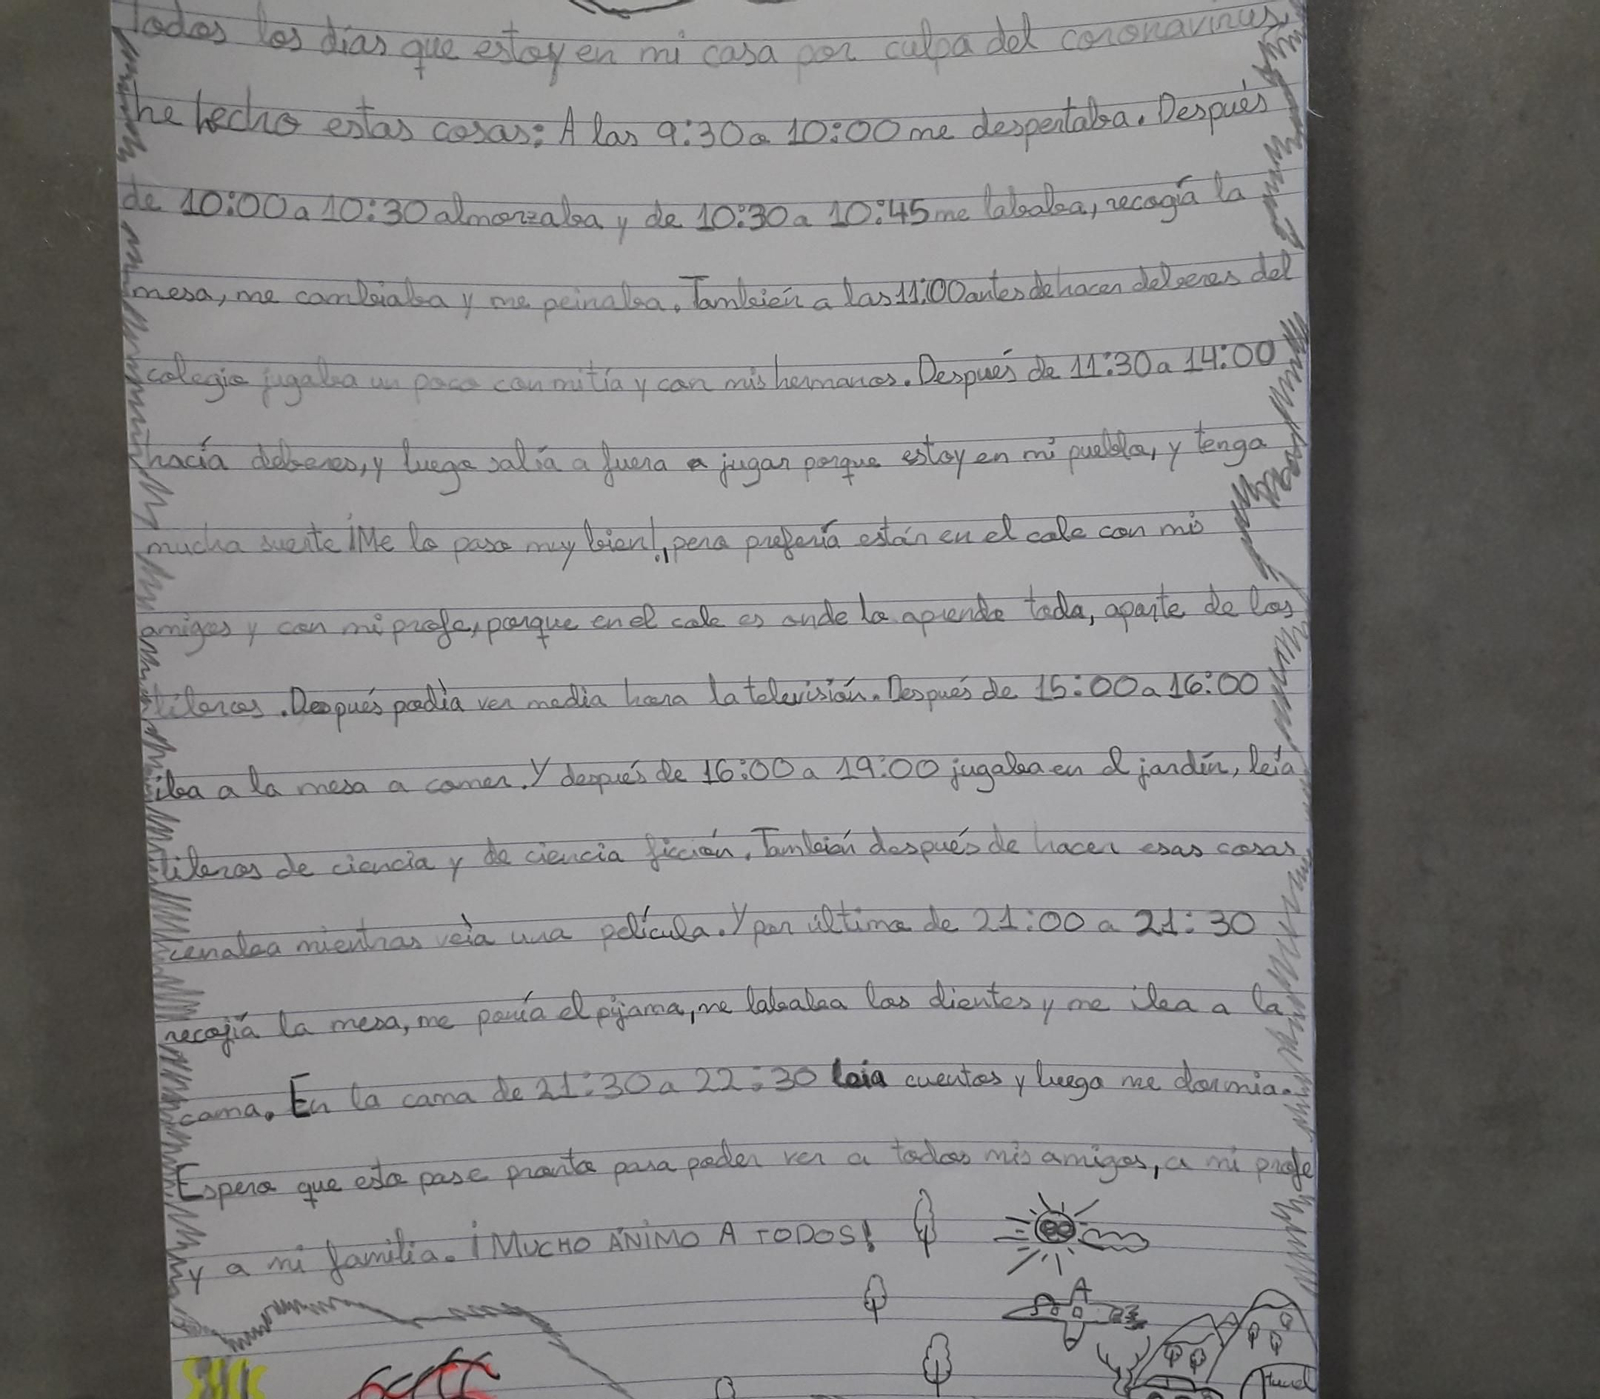 Todos los días que estoy en mi casa por culpa del coronavirus,
he hecho estas cosas: A las 9:30 a 10:00 me despertaba. Después
de 10:00 a 10:30 almorzaba y de 10:30 a 10:45 me lababa, recogía la
mesa, me cambiaba y me peinaba. También a las 11:00 antes de hacer deberes del
colegio jugaba un poco con mi tía y con mis hermanos. Después de 11:30 a 14:00
hacía deberes, y luego salía a fuera a jugar porque estoy en mi pueblo, y tengo
mucha suerte ¡Me lo paso muy bien!, pero prefería estar en el cole con mis
amigos y con mi profe, porque en el cole es onde lo aprendo todo, aparte de los
libros. Después podía ver media hora la televisión. Después de 15:00 a 16:00
iba a la mesa a comer. Y después de 16:00 a 19:00 jugaba en el jardín, leía
libros de ciencia y de ciencia ficción. También después de hacer esas cosas
cenaba mientras veía una película. Y por último de 21:00 a 21:30
recojía la mesa, me ponía el pijama, me lababa los dientes y me iba a la
cama. En la cama de 21:30 a 22:30 leia cuentos y luego me dormia.
Espero que esto pase pronto para poder ver a todos mis amigos, a mi profe
y a mi familia. ¡MUCHO ÁNIMO A TODOS!